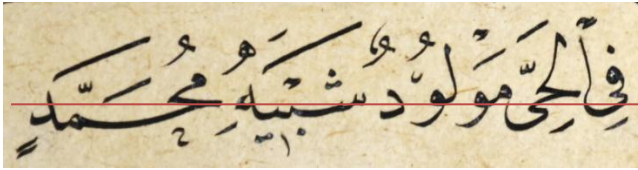 فِي اْلحَىِّ مَوْلُودٌ شَبِيهُ مُحَمَّدٍ